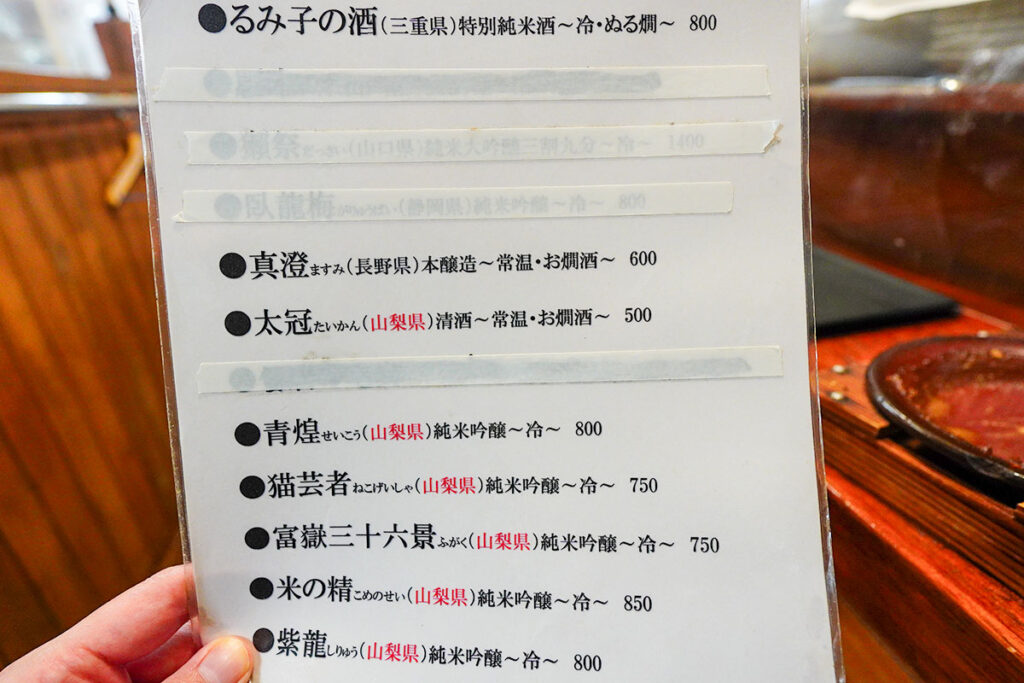 ●るみ子の酒(三重県)特別純米酒～冷・ぬる燗～ 800
●獺祭だっさい(山口県)純米大吟醸三割九分～冷～ 1400
●臥龍梅がりゅうばい(静岡県)純米吟醸～冷～ 800
●真澄ますみ(長野県)本醸造～常温・お燗酒～ 600
●太冠たいかん(山梨県)清酒～常温・お燗酒～ 500
●青煌せいこう(山梨県)純米吟醸～冷～ 800
●猫芸者ねこげいしゃ(山梨県)純米吟醸～冷～ 750
●富嶽三十六景ふがく(山梨県)純米吟醸～冷～ 750
●米の精こめのせい(山梨県)純米吟醸～冷～ 850
●紫龍しりゅう(山梨県)純米吟醸～冷～ 800